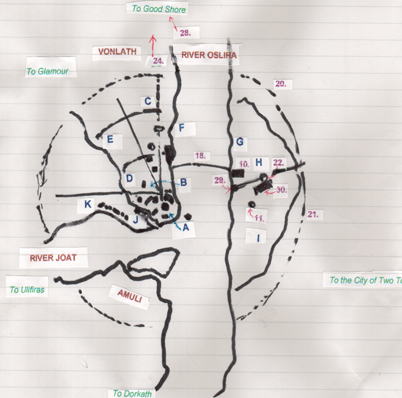 To Good Shore
28.
VONLATH
RIVER OSLIHA
24.
To Glamour
20.
C
F
E
G
18.
10.
H
22.
D
B
29.
30.
K
J
11.
21.
A
I
RIVER JOAT
To the City of Two T
To Ulifiras
AMULI
To Dorkath